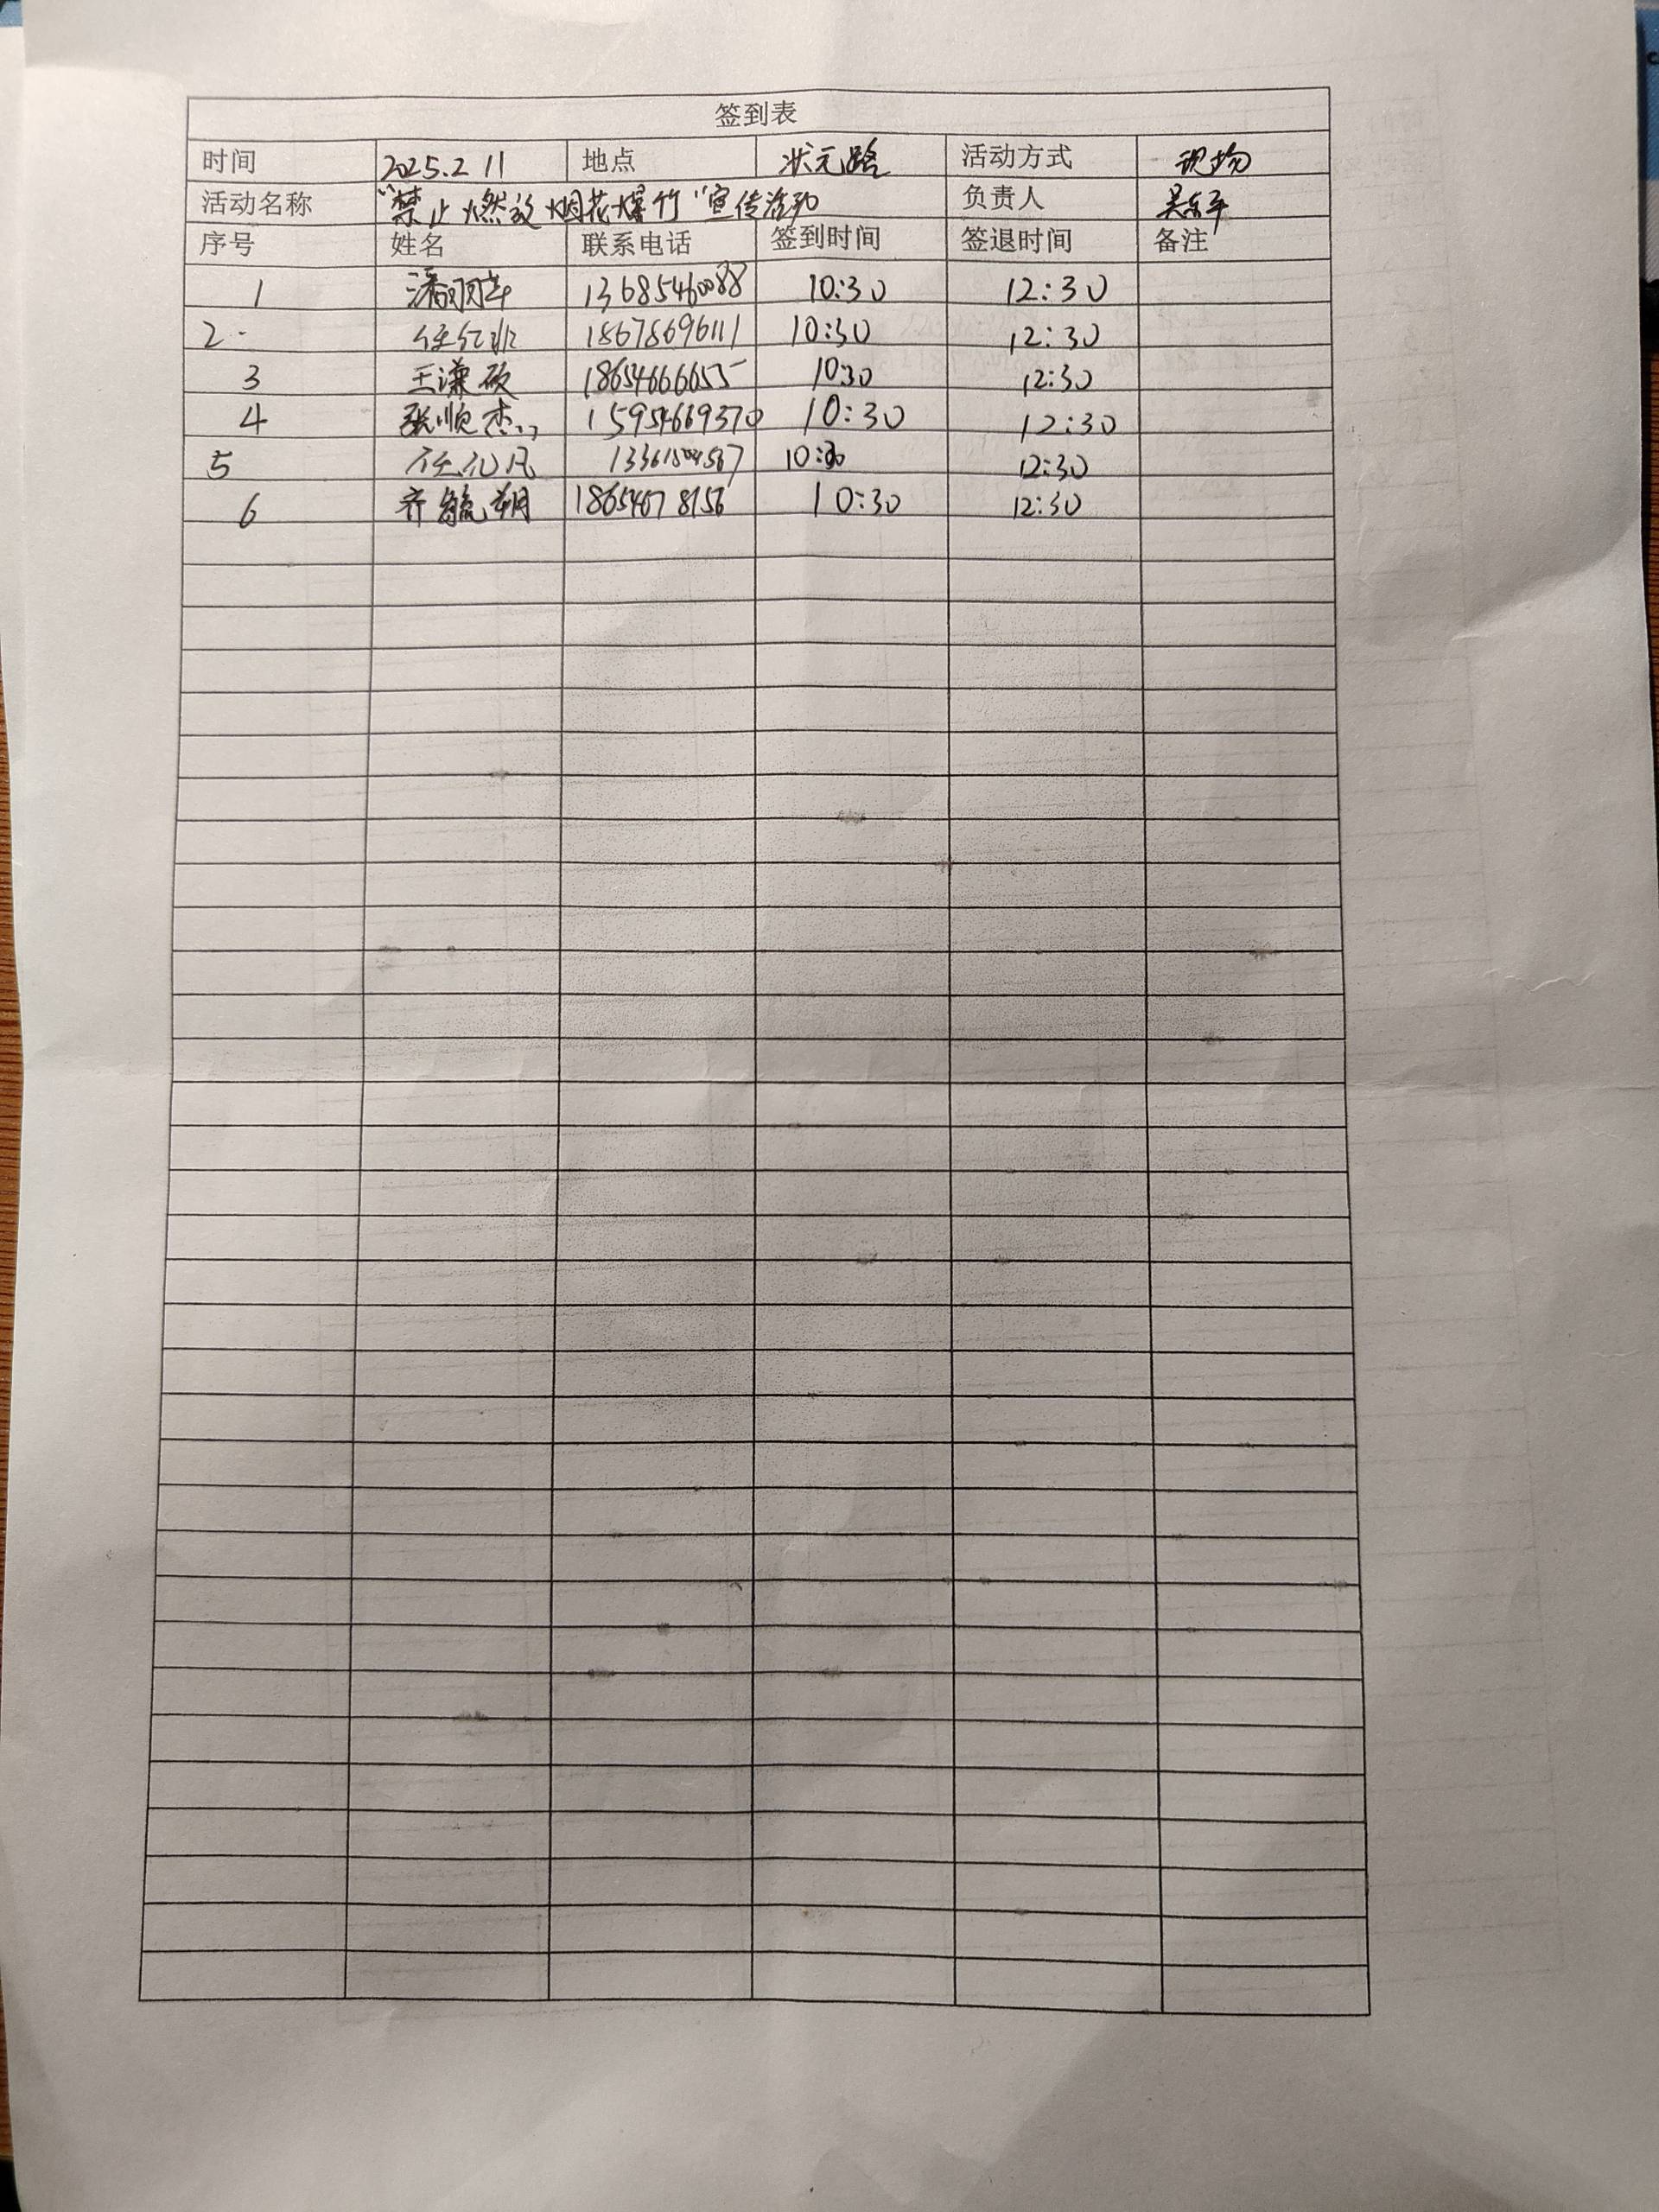 签到表
时间 2025.2 11 地点 状元路 活动方式 现场
活动名称 "禁止燃放烟花爆竹"宣传活动 负责人 吴东平
序号 姓名 联系电话 签到时间 签退时间 备注
1 13685460088 10:30 12:30
2 18678696111 10:30 12:30
3 王谦硕 18654666655 10:30 12:30
4 张顺杰 15954669370 10:30 12:30
5 10:30 12:30
6 齐毓朔 18654678156 10:30 12:30